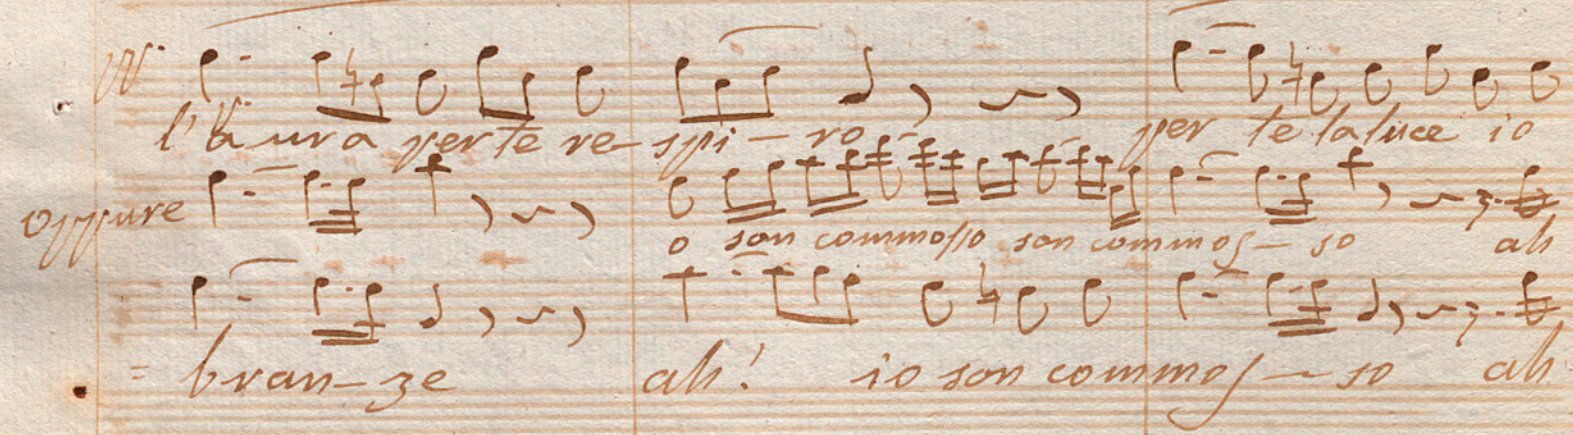 l'a ura per te re- spi - ro - per te la luce io
oppure o son commosso son commos - so ah
= bran - ze ah! io son commos - so ah